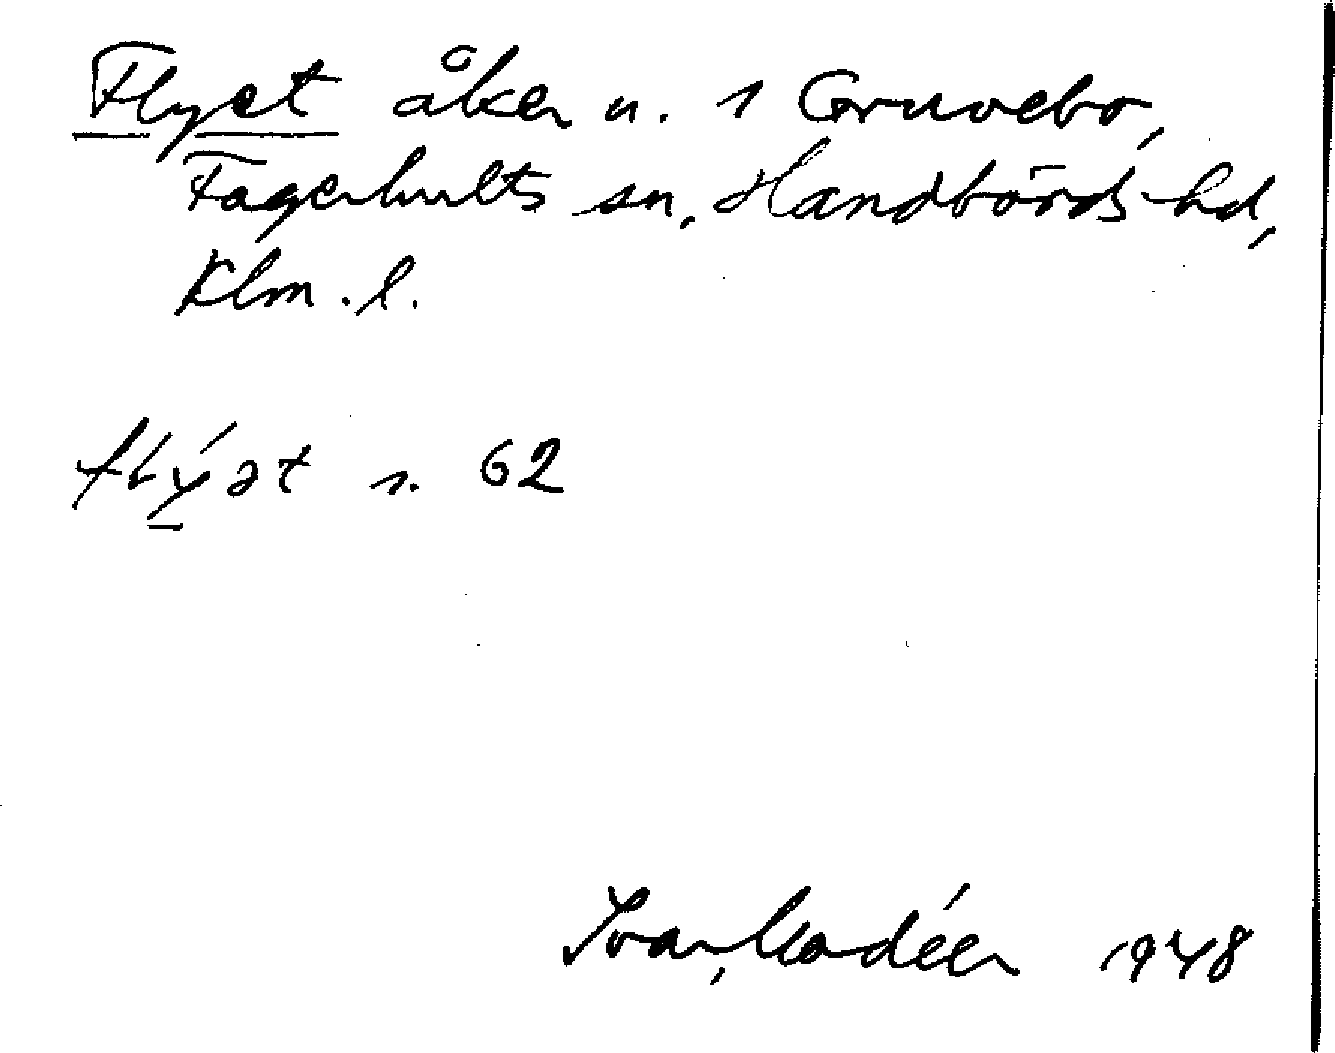 Flyet åker u. 1 Gruvebo,
Fagerhults sn, Handbörds hd,
Klm. l.
flýət s. 62
Ivar Modéer 1948